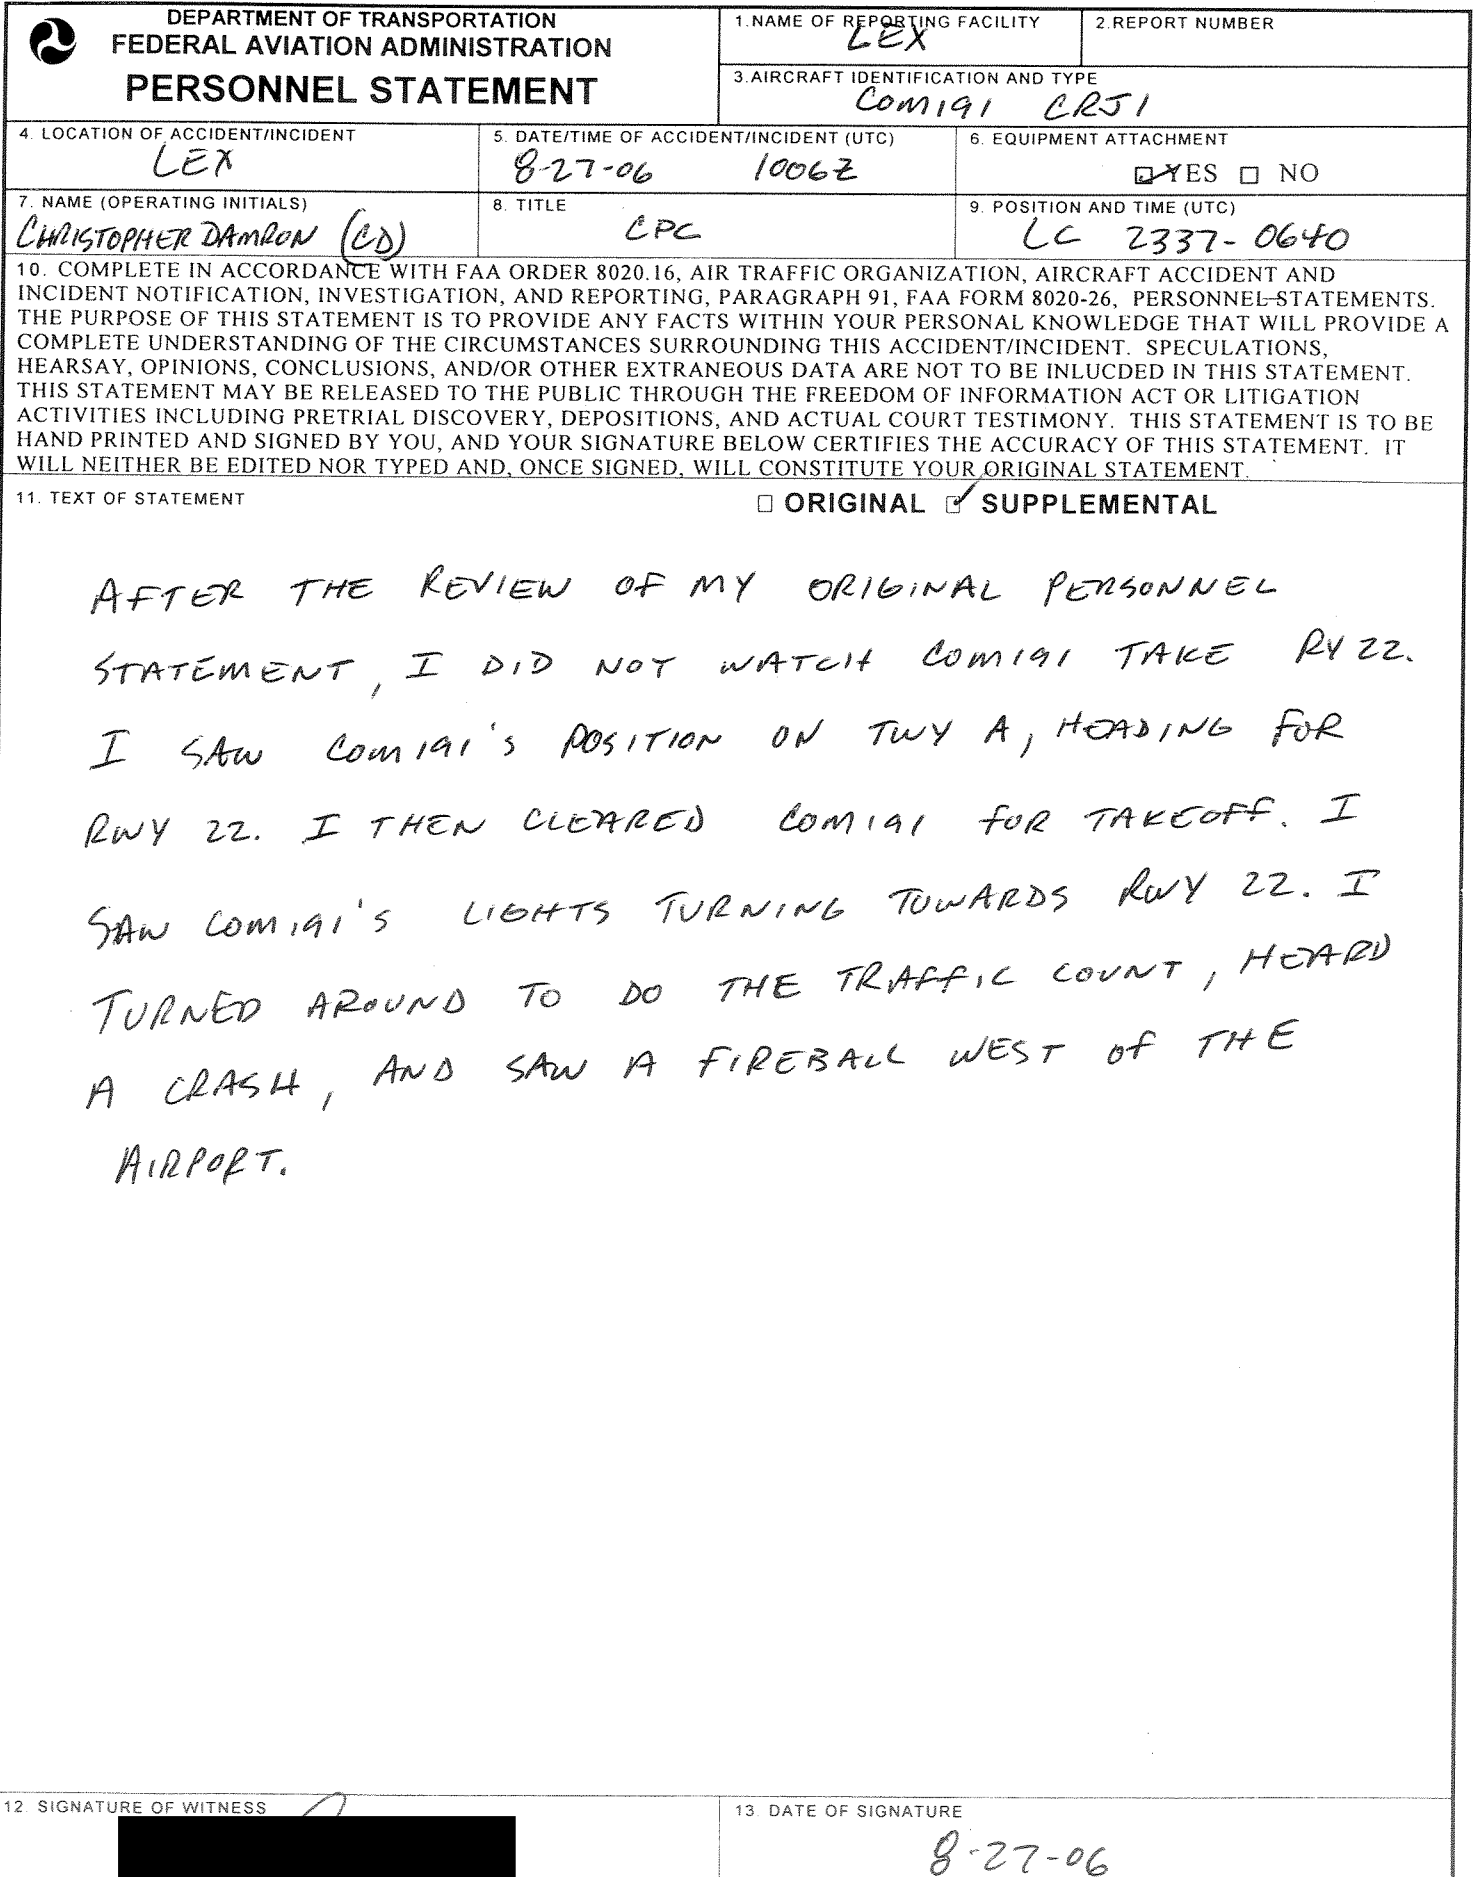 DEPARTMENT OF TRANSPORTATION
FEDERAL AVIATION ADMINISTRATION
PERSONNEL STATEMENT
1.NAME OF REPORTING FACILITY
LEX
2.REPORT NUMBER
3.AIRCRAFT IDENTIFICATION AND TYPE
COM191 CRJ1
4. LOCATION OF ACCIDENT/INCIDENT
LEX
5. DATE/TIME OF ACCIDENT/INCIDENT (UTC)
8-27-06 1006Z
6. EQUIPMENT ATTACHMENT
☑ YES ☐ NO
7. NAME (OPERATING INITIALS)
CHRISTOPHER DAMRON (CD)
8. TITLE
CPC
9. POSITION AND TIME (UTC)
LC 2337-0640
10. COMPLETE IN ACCORDANCE WITH FAA ORDER 8020.16, AIR TRAFFIC ORGANIZATION, AIRCRAFT ACCIDENT AND
INCIDENT NOTIFICATION, INVESTIGATION, AND REPORTING, PARAGRAPH 91, FAA FORM 8020-26, PERSONNEL STATEMENTS.
THE PURPOSE OF THIS STATEMENT IS TO PROVIDE ANY FACTS WITHIN YOUR PERSONAL KNOWLEDGE THAT WILL PROVIDE A
COMPLETE UNDERSTANDING OF THE CIRCUMSTANCES SURROUNDING THIS ACCIDENT/INCIDENT. SPECULATIONS,
HEARSAY, OPINIONS, CONCLUSIONS, AND/OR OTHER EXTRANEOUS DATA ARE NOT TO BE INLUCDED IN THIS STATEMENT.
THIS STATEMENT MAY BE RELEASED TO THE PUBLIC THROUGH THE FREEDOM OF INFORMATION ACT OR LITIGATION
ACTIVITIES INCLUDING PRETRIAL DISCOVERY, DEPOSITIONS, AND ACTUAL COURT TESTIMONY. THIS STATEMENT IS TO BE
HAND PRINTED AND SIGNED BY YOU, AND YOUR SIGNATURE BELOW CERTIFIES THE ACCURACY OF THIS STATEMENT. IT
WILL NEITHER BE EDITED NOR TYPED AND, ONCE SIGNED, WILL CONSTITUTE YOUR ORIGINAL STATEMENT.
11. TEXT OF STATEMENT
☐ ORIGINAL ☑ SUPPLEMENTAL
AFTER THE REVIEW OF MY ORIGINAL PERSONNEL
STATEMENT, I DID NOT WATCH COM191 TAKE RY 22.
I SAW COM191'S POSITION ON TWY A, HEADING FOR
RWY 22. I THEN CLEARED COM191 FOR TAKEOFF. I
SAW COM191'S LIGHTS TURNING TOWARDS RWY 22. I
TURNED AROUND TO DO THE TRAFFIC COUNT, HEARD
A CRASH, AND SAW A FIREBALL WEST OF THE
AIRPORT.
12. SIGNATURE OF WITNESS
13. DATE OF SIGNATURE
8-27-06